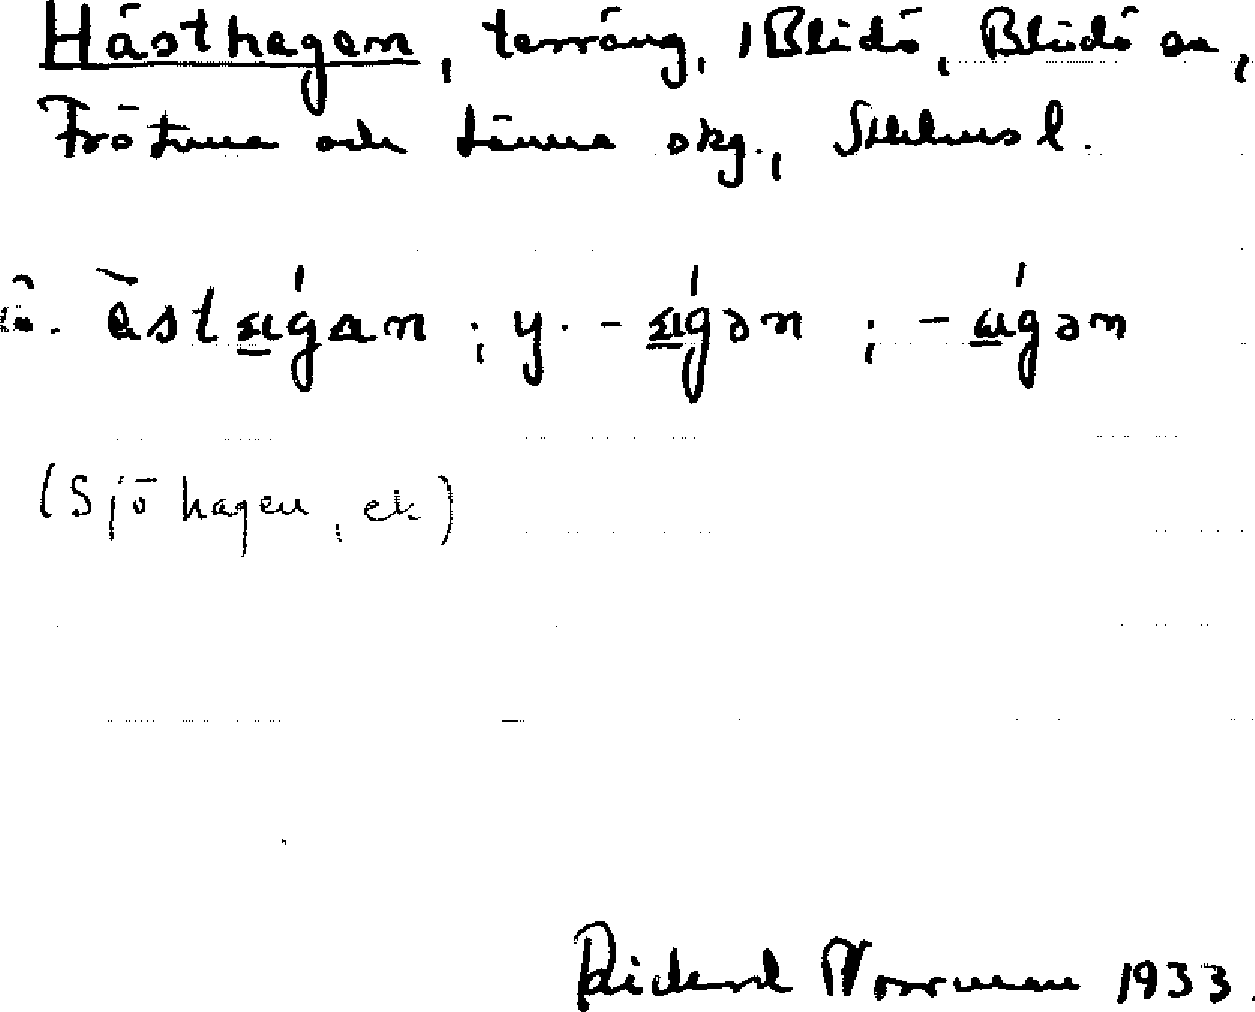 Hästhagen, terräng, i Blidö, Blidö sn,
Frötuna och Länna skg., Sthlms l.
ä. ästagan ; y. -agən ; -agən
(Sjöhagen, ek)
Rickard Norrman 1933.